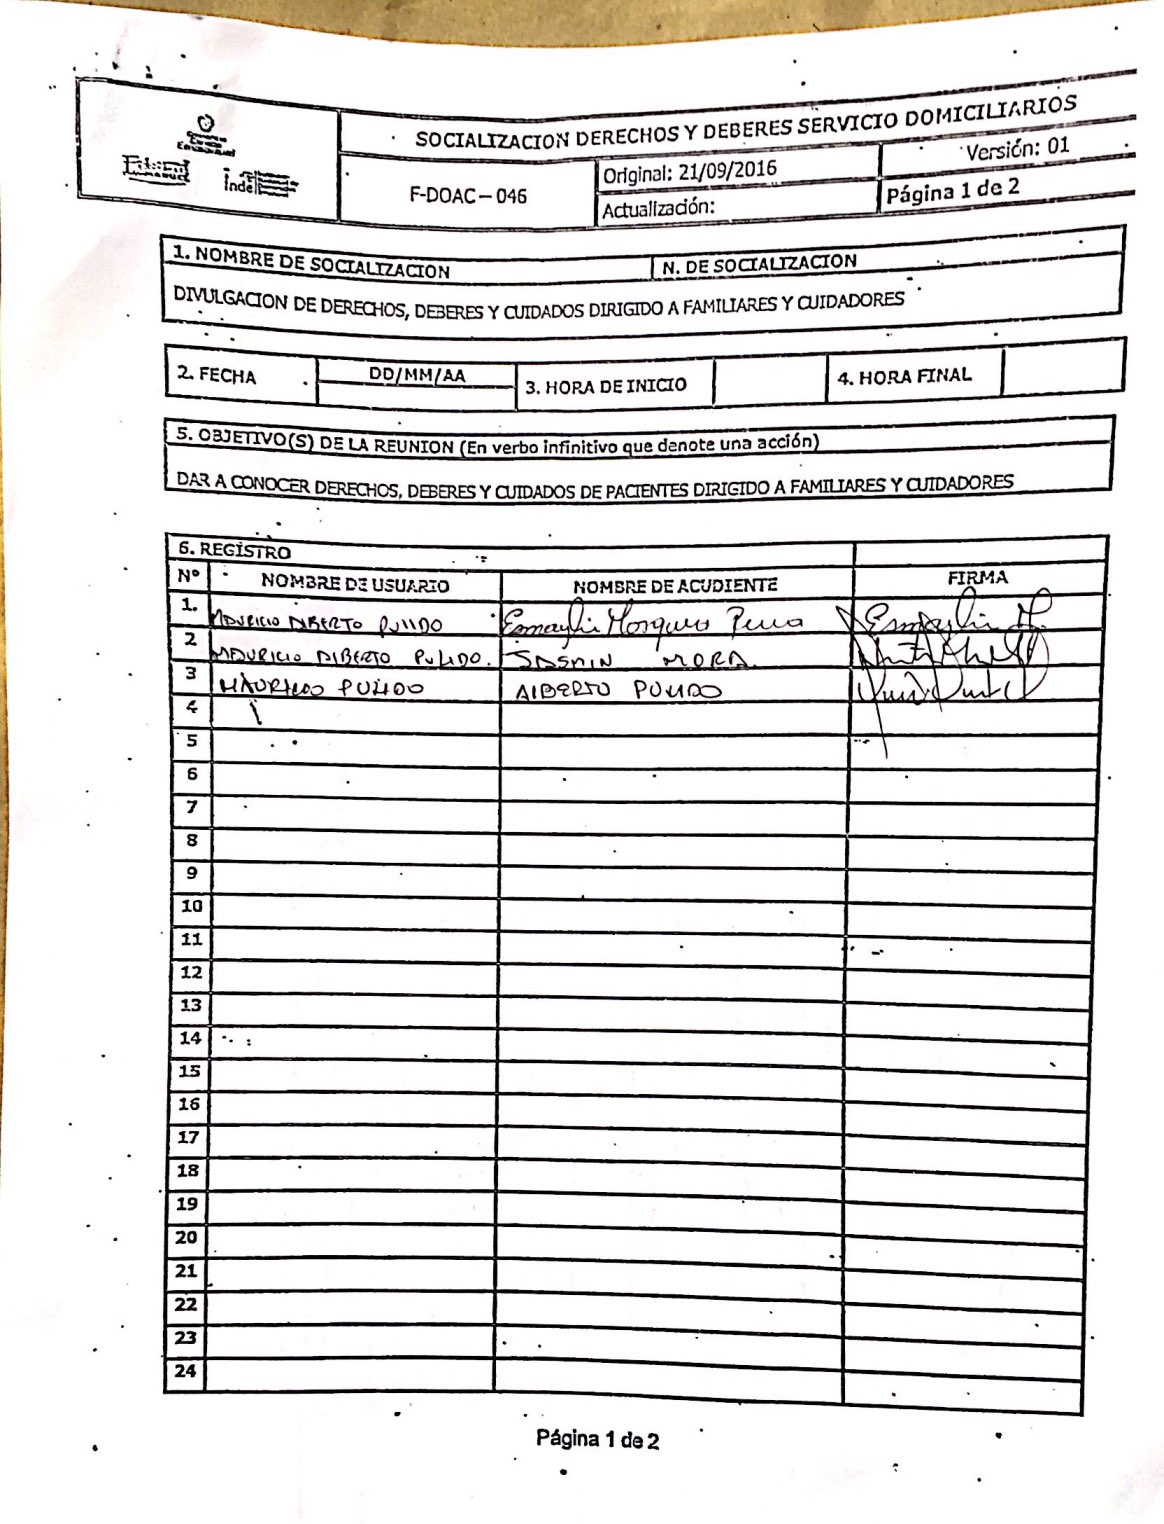 SOCIALIZACION DERECHOS Y DEBERES SERVICIO DOMICILIARIOS
F-DOAC-046
Original: 21/09/2016
Versión: 01
Actualización:
Página 1 de 2
1. NOMBRE DE SOCIALIZACION
N. DE SOCIALIZACION
DIVULGACION DE DERECHOS, DEBERES Y CUIDADOS DIRIGIDO A FAMILIARES Y CUIDADORES
2. FECHA
DD/MM/AA
3. HORA DE INICIO
4. HORA FINAL
5. OBJETIVO(S) DE LA REUNION (En verbo infinitivo que denote una acción)
DAR A CONOCER DERECHOS, DEBERES Y CUIDADOS DE PACIENTES DIRIGIDO A FAMILIARES Y CUIDADORES
6. REGISTRO
Nº NOMBRE DE USUARIO NOMBRE DE ACUDIENTE FIRMA
1. MAURICIO ALBERTO PULIDO Mosquera
2 MAURICIO ALBERTO PULIDO. MORA
3 MAURICIO PULIDO ALBERTO PULIDO
4
5
6
7
8
9
10
11
12
13
14
15
16
17
18
19
20
21
22
23
24
Página 1 de 2